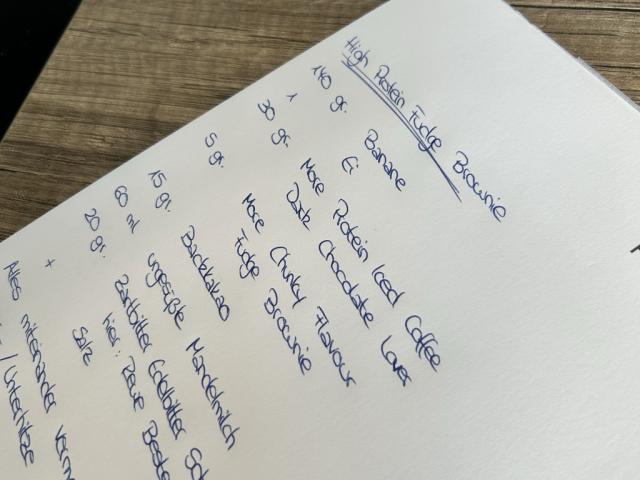 High Protein Fudge Brownie
140 gr. Banane
1 Ei
30 gr. More Protein Iced Coffee
Dark Chocolate Lover
5 gr. More Chunky Flavour
Fudge Brownie
15 gr. Backkakao
60 ml ungesüßte Mandelmilch
20 gr. Zartbitter Edelbitter
hier: Rewe Beste
+ Salz
Alles miteinander
/ Unterhitze